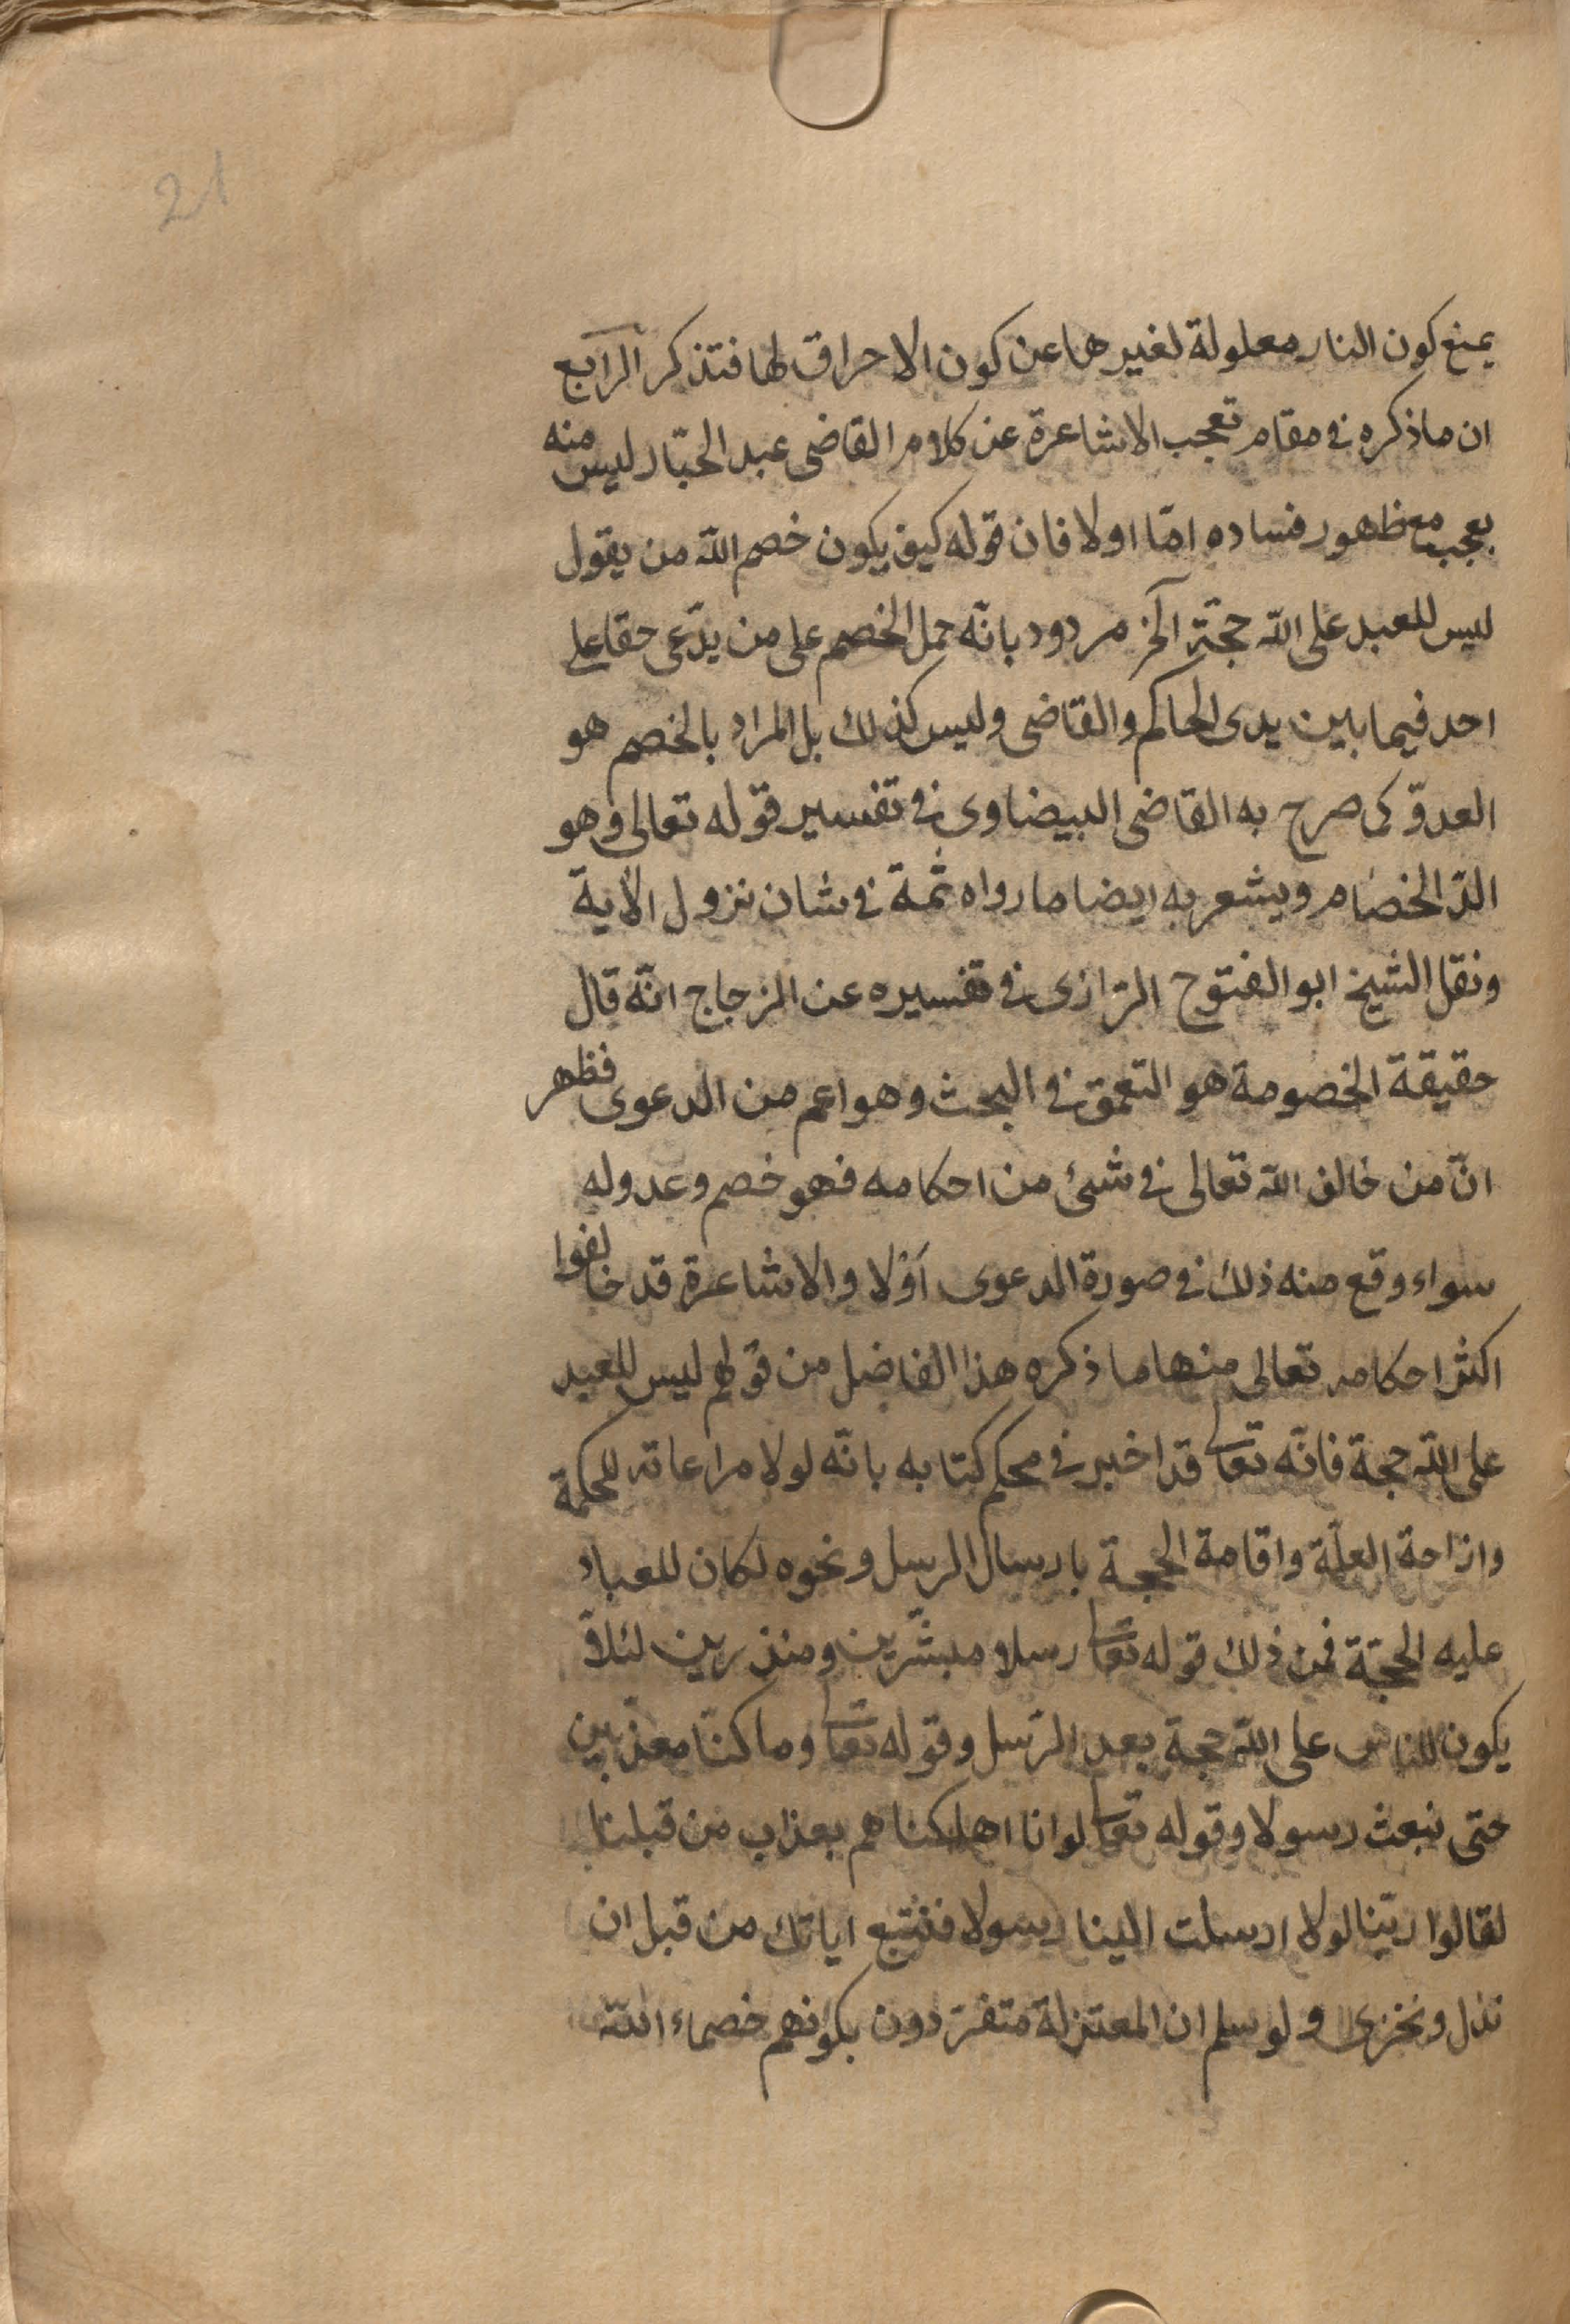 21
يمنع كون النار معلولة لغيرها عن كون الاحراق لها فتذكر الرابع
ان ما ذكره في مقام تعجب الاشاعرة عن كلام القاضى عبد الجبّار ليس منه
بعجب مع ظهور فساده امّا اولا فان قوله كيف يكون خصم الله من يقول
ليس للعبد على الله حجّة آلخ مردود بانّه حمل الخصم على من يدّعى حقا على
احد فيما بين يدى الحاكم والقاضى وليس كذلك بل المراد بالخصم هو
العدوّ كما صرح به القاضى البيضاوى في تفسير قوله تعالى وهو
الدّ الخصام ويشعر به ايضا ما رواه ثمة في شان نزول الآية
ونقل الشيخ ابو الفتوح الرّازى في تفسيره عن الزجاج انّه قال
حقيقة الخصومة هو التعمق في البحث وهو اعم من الدعوى فظهر
انّ من خالف الله تعالى في شئ من احكامه فهو خصم وعدو له
سواء وقع منه ذلك في صورة الدعوى آوْلا والاشاعرة قد خالفوا
اكثر احكامه تعالى منها ما ذكره هذا الفاضل من قولهم ليس للعبد
على الله حجة فانّه تعالى قد اخبر في محكم كتابه بانّه لولا مراعاته للحكمة
وازاحة العلّة واقامة الحجة بارسال الرسل ونحوه لكان للعباد
عليه الحجّة فمن ذلك قوله تعالى رسلا مبشّرين ومنذرين لئلاّ
يكون للناس على الله حجة بعد الرّسل وقوله تعالى وما كنّا معذّبين
حتى نبعث رسولا وقوله تعالى لو انا اهلكناهم بعذاب من قبلنا
لقالوا ربّنا لولا ارسلت الينا رسولا فنتّبع اياتك من قبل ان
نذل ونخزى ولو سلم ان المعتزلة متفرّدون بكونهم خصماء الله